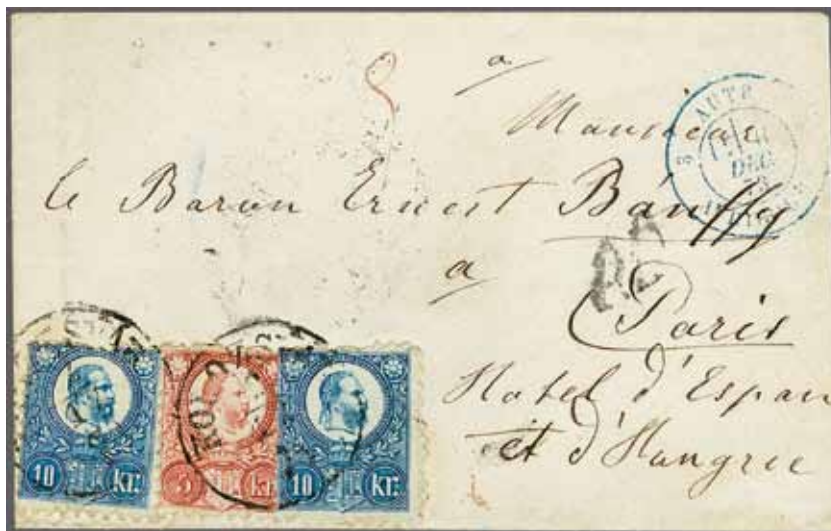 a
Monsieur
le Baron Ernest Bánffy
a
Paris
Hotel d'Espan
et d'Hongrie
PD
AUTR
DEC
10 Kr.
5 kr.
10 Kr.
KOLO